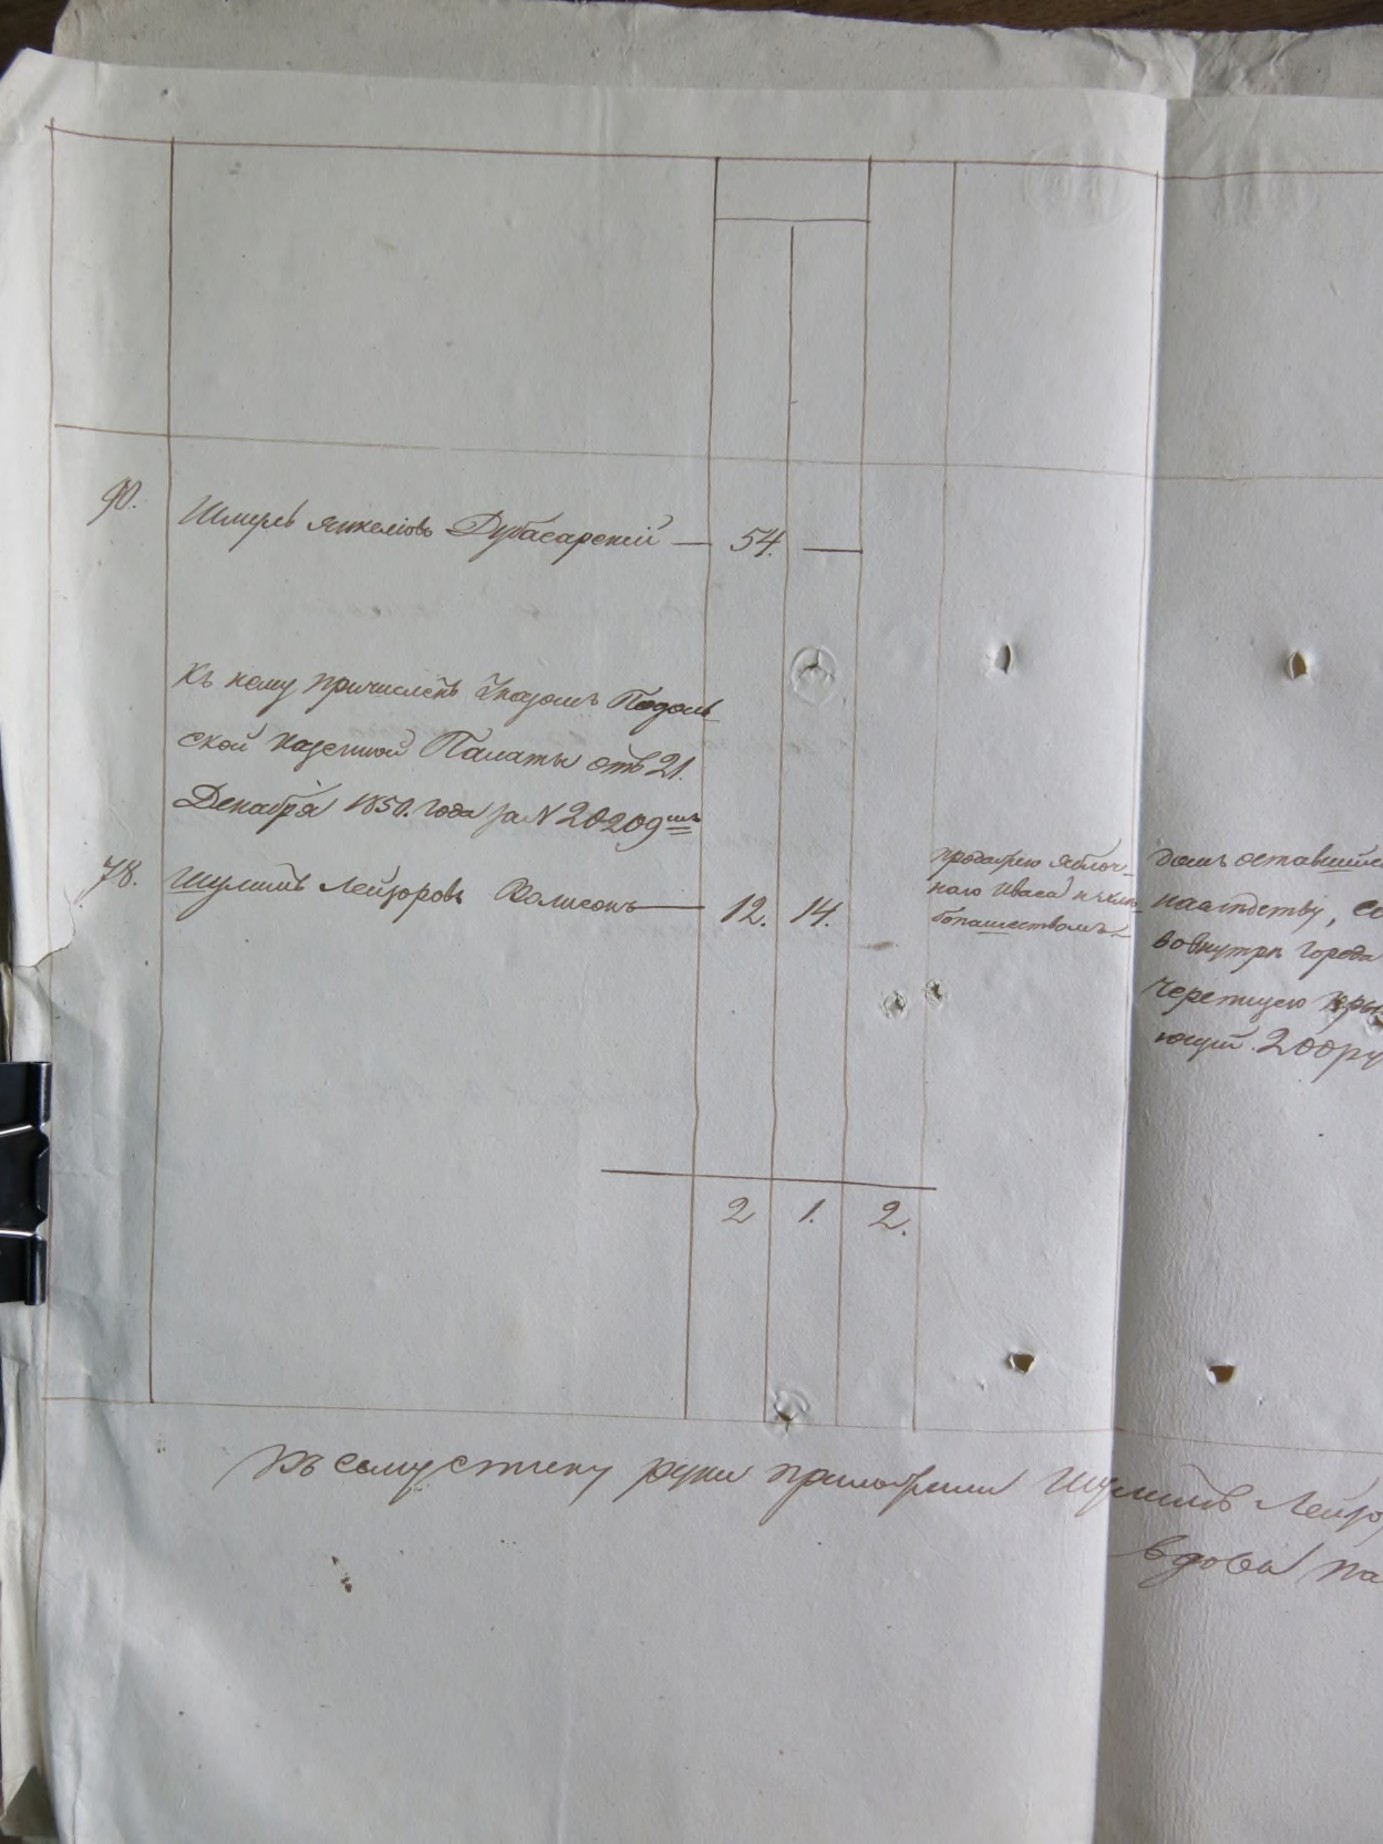 90.
Шмуль Янкеліовъ Дубасарскій — 54. —
Къ нему причисленъ Указомъ Подоль-
ской Казенной Палаты отъ 21.
Декабря 1850. года за N 20209мъ
78.
Шулимъ Лейзоровъ Фолисонъ — 12. 14.
продажею яблоч-
наго кваса и хлѣ-
бопашествомъ —
домъ оставшійся
наслѣдству, со
вовнутри города
черепицею кры
ющій 200 ру
2 1. 2.
Къ сему стику руки приложили Шулимъ Лейзо
вдова на